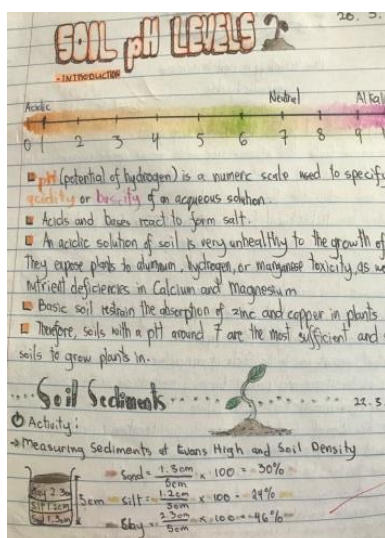 26. 5.
SOIL pH LEVELS
- INTRODUCTION
Acidic Neutral Alkal
0 1 2 3 4 5 6 7 8 9
pH (potential of hydrogen) is a numeric scale used to specify
acidity or basicity of an aqueous solution.
Acids and bases react to form salt.
An acidic solution of soil is very unhealthy to the growth of
They expose plants to aluminum, hydrogen, or manganese toxicity, as we
nutrient deficiencies in Calcium and Magnesium
Basic soil restrain the absorption of zinc and copper in plants
Therefore, soils with a pH around 7 are the most sufficient and
soils to grow plants in.
Soil Sediments
22.5
Activity:
→ Measuring Sediments at Evans High and Soil Density
Sand = 1.5cm/5cm × 100 = 30%
5cm Silt = 1.2cm/5cm × 100 = 24%
2.3cm/5cm × 100 = 46%